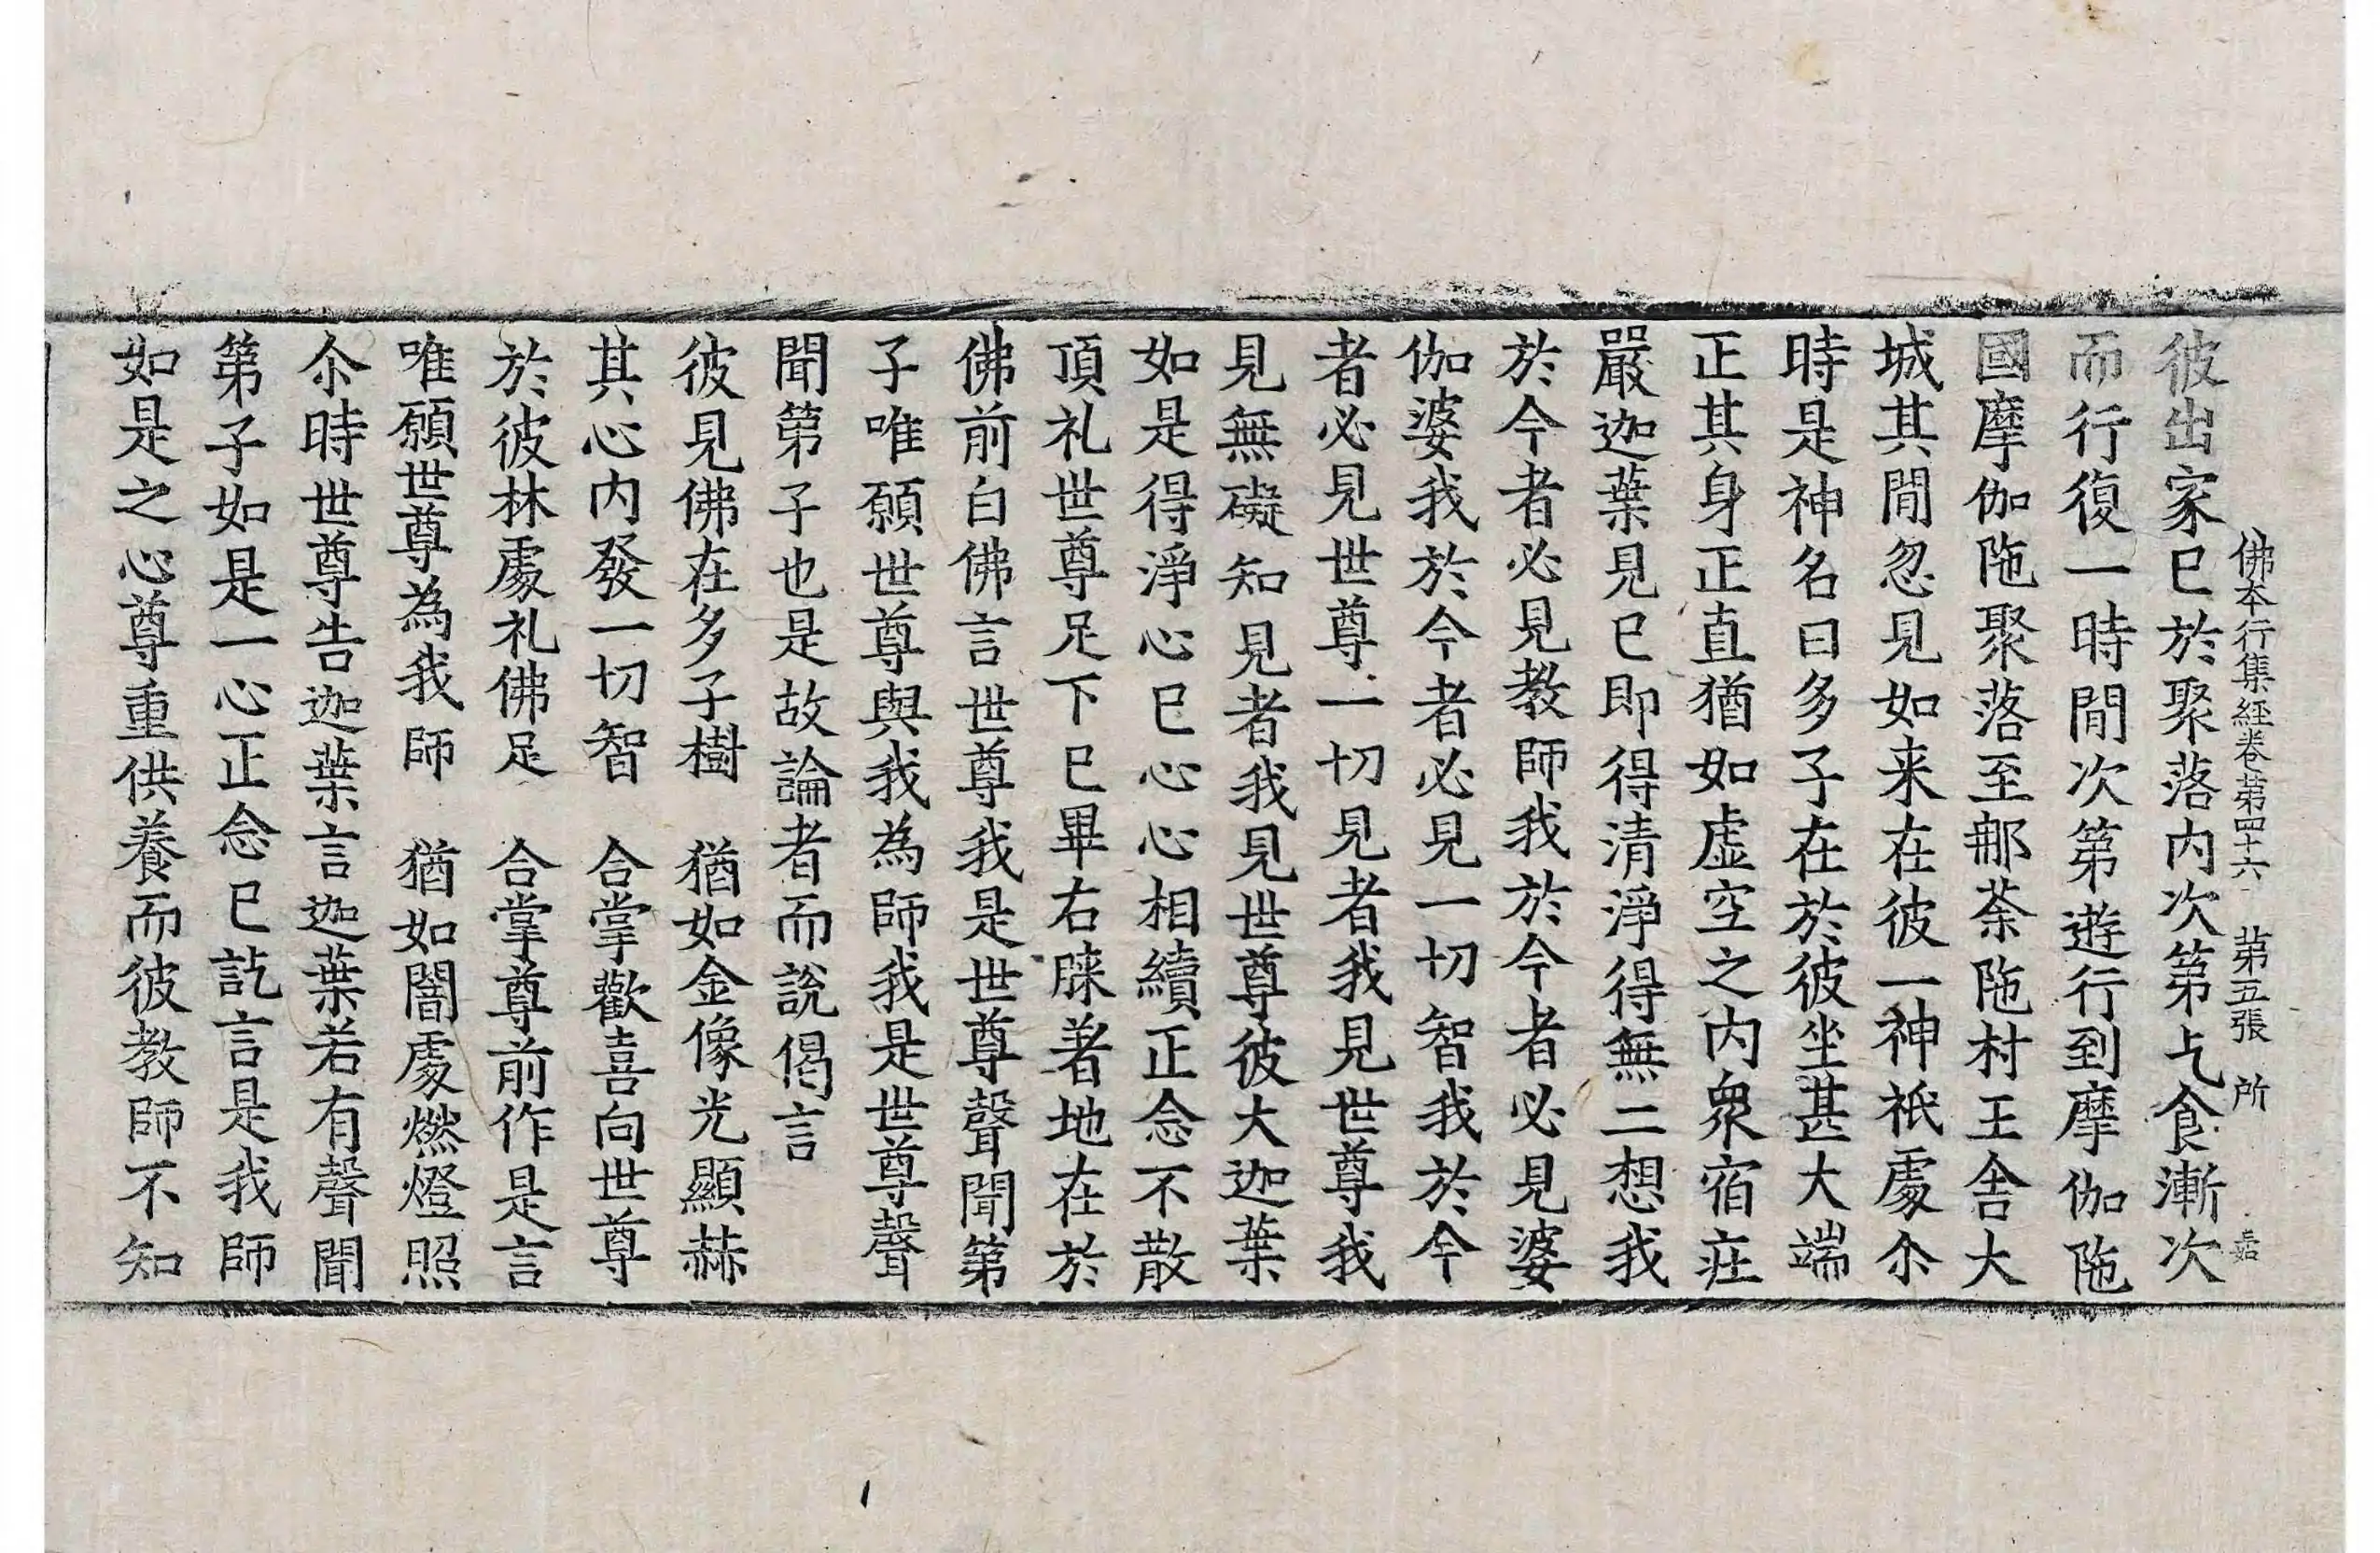 佛本行集經卷第四十六 第五張 所 嘉
彼出家巳於聚落內次第乞食漸次
而行復一時間次第遊行到摩伽陁
國摩伽陁聚落至那荼陁村王舍大
城其間忽見如来在彼一神祇處尒
時是神名曰多子在於彼坐甚大端
正其身正直猶如虛空之內衆宿庄
嚴迦葉見巳即得清淨得無二想我
於今者必見教師我於今者必見婆
伽婆我於今者必見一切智我於今
者必見世尊一切見者我見世尊我
見無礙知見者我見世尊彼大迦葉
如是得淨心巳心心相續正念不散
頂礼世尊足下巳畢右䐆著地在於
佛前白佛言世尊我是世尊聲聞第
子唯願世尊與我為師我是世尊聲
聞第子也是故論者而說偈言
彼見佛在多子樹 猶如金像光顯赫
其心內發一切智 合掌歡喜向世尊
於彼林處礼佛足 合掌尊前作是言
唯願世尊為我師 猶如闇處燃燈照
尒時世尊告迦葉言迦葉若有聲聞
第子如是一心正念巳訖言是我師
如是之心尊重供養而彼教師不知